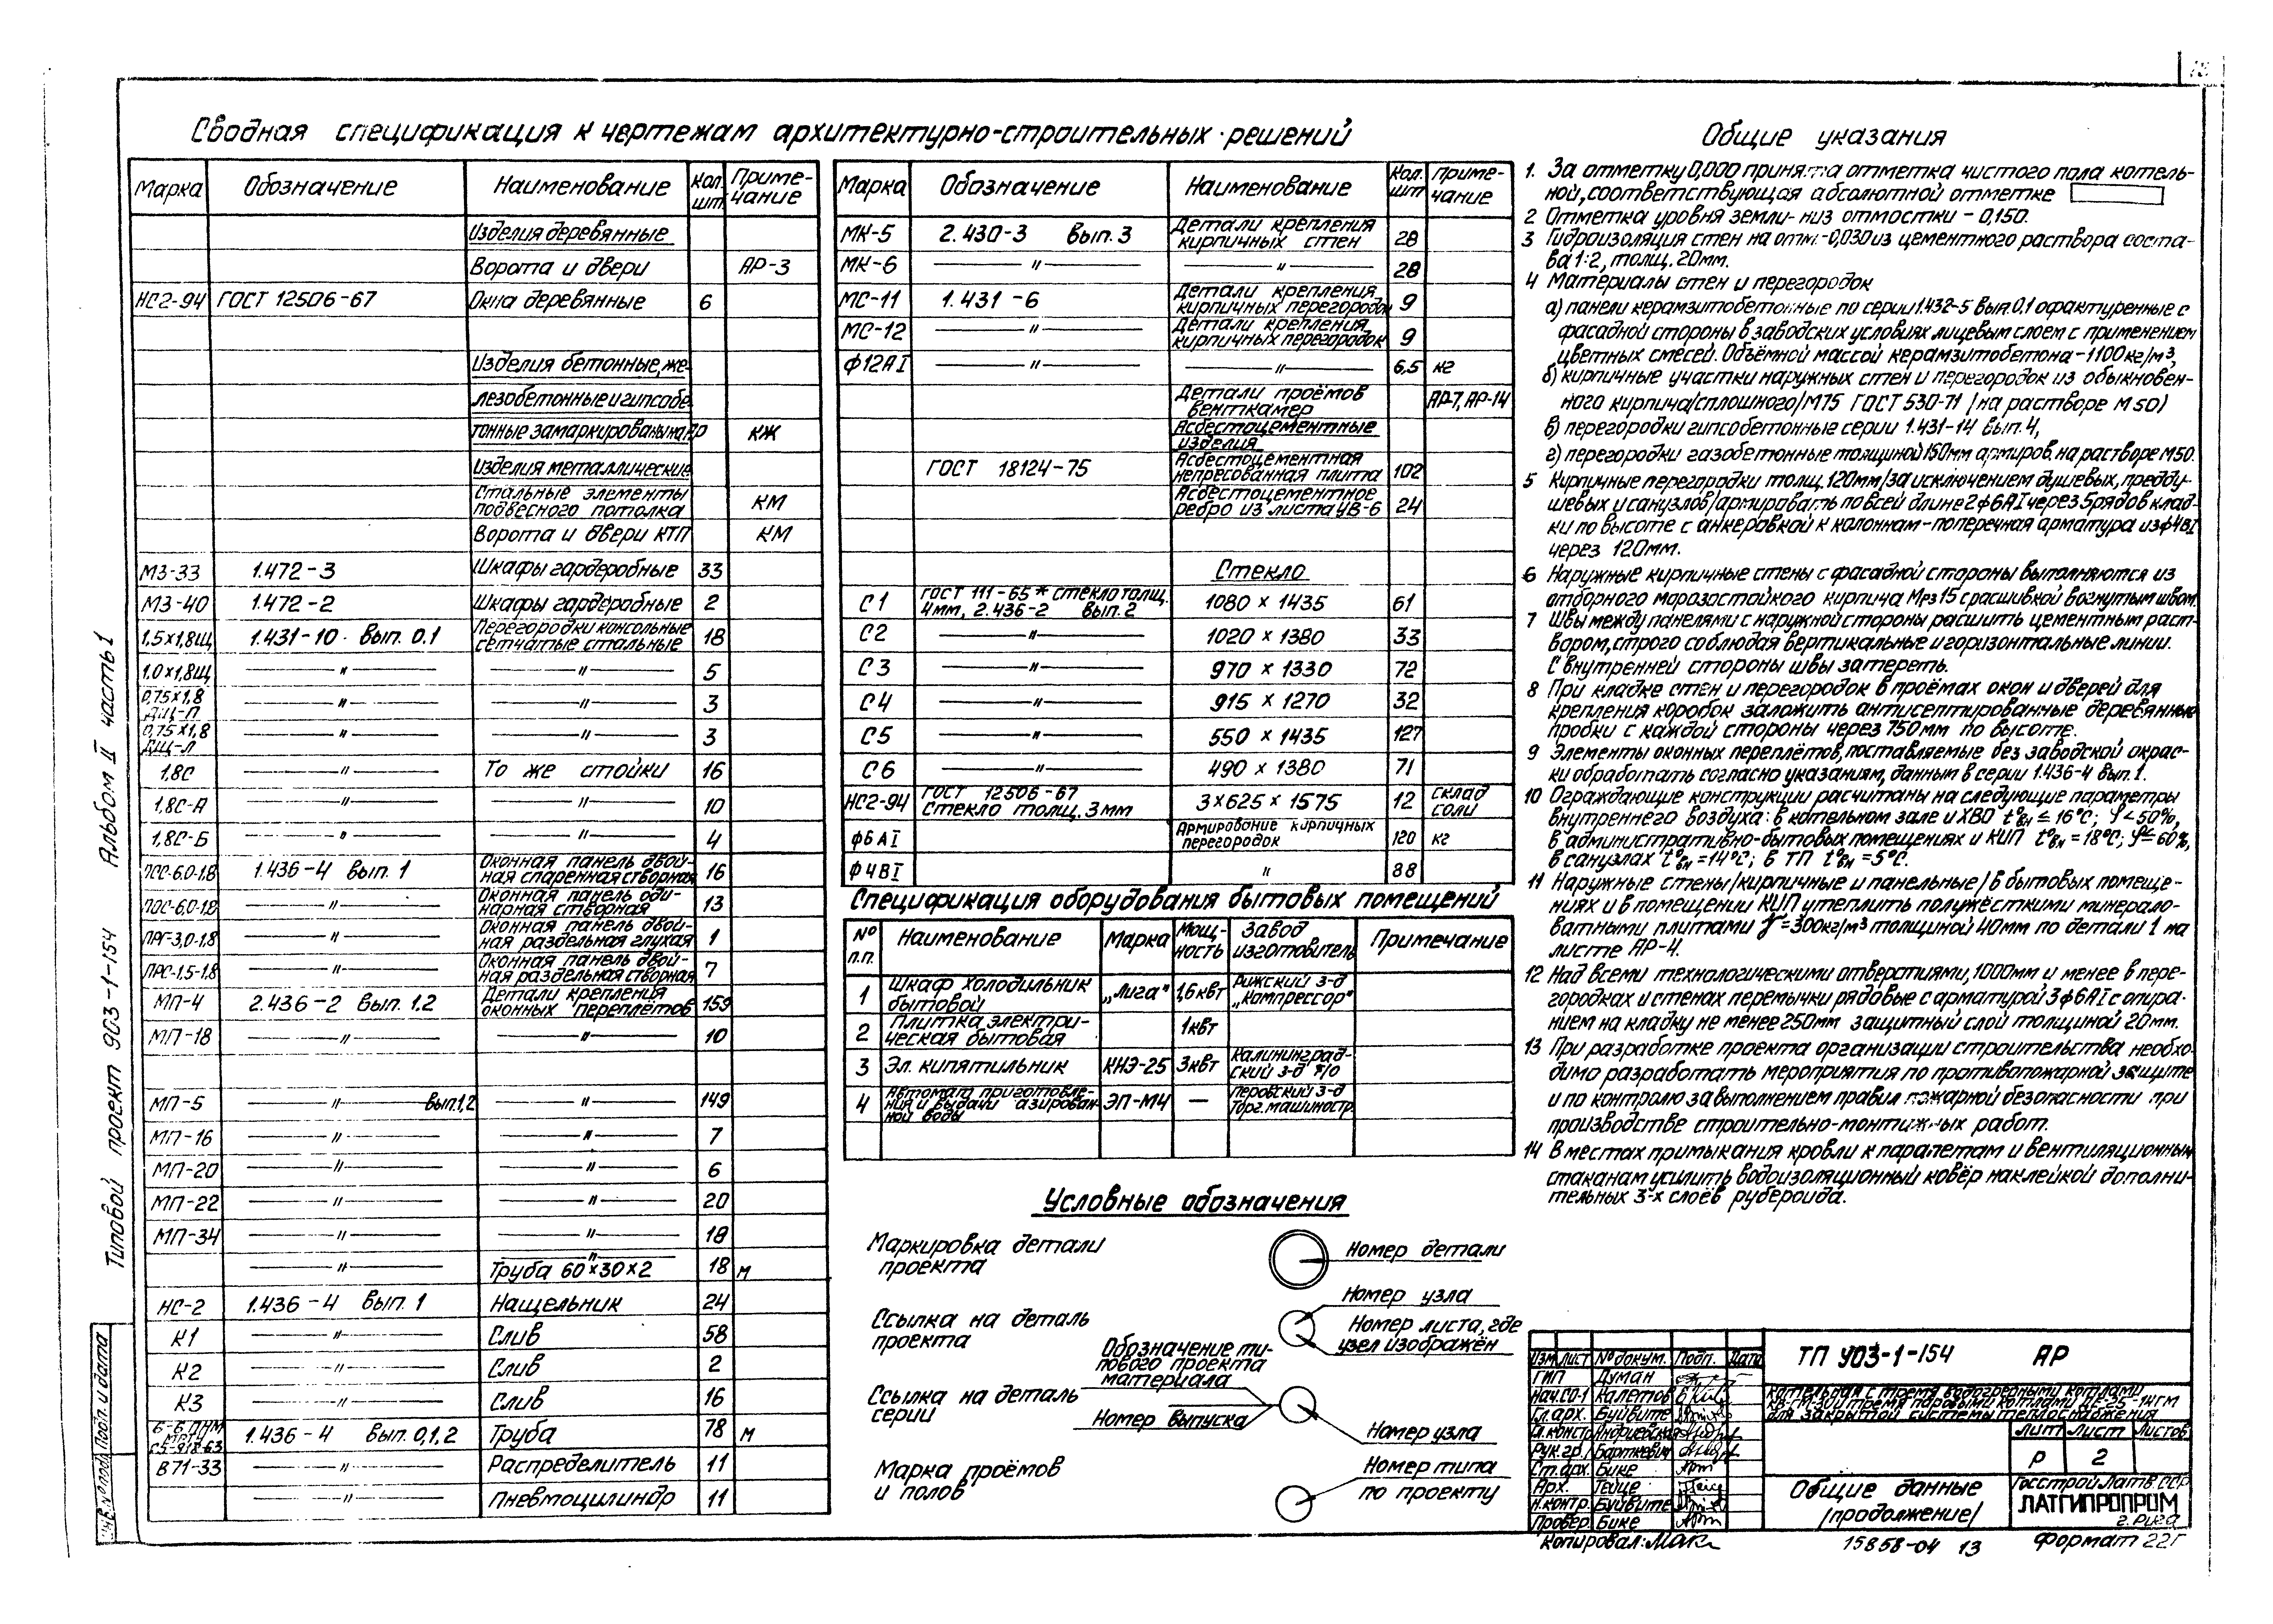 Сводная спецификация к чертежам архитектурно-строительных решений
Марка Обозначение Наименование Кол. шт Приме-чание
Изделия деревянные
Ворота и двери АР-3
НС2-94 ГОСТ 12506-67 Окна деревянные 6
Изделия бетонные, же-
лезобетонные и гипсобе-
тонные замаркированы на КЖ
Изделия металлические
Стальные элементы
подвесного потолка КМ
Ворота и двери КТП КМ
МЗ-33 1.472-3 Шкафы гардеробные 33
МЗ-40 1.472-2 Шкафы гардеробные 2
1.5×1,8щ 1.431-10. Вып. 0.1 Перегородки консольные сетчатые стальные 18
1.0×1,8щ —〃— —〃— 5
0,75×1,8 ДЩ-П —〃— —〃— 3
0,75×1,8 ДЩ-Л —〃— —〃— 3
1,8С —〃— То же стойки 16
1,8С-А —〃— —〃— 10
1,8С-Б —〃— —〃— 4
ПСС-6.0-1.8 1.436-4 Вып. 1 Оконная панель двой-ная спаренная створная 16
ПОС-6,0-1,8 —〃— Оконная панель оди-нарная створная 13
ПРГ-3,0-1,8 —〃— Оконная панель двой-ная раздельная глухая 1
ПРС-1.5-1.8 —〃— Оконная панель двой-ная раздельная створная 7
МП-4 2.436-2 Вып. 1.2 Детали крепления оконных переплётов 159
МП-18 —〃— —〃— 10
МП-5 —〃— Вып.1,2 —〃— 149
МП-16 —〃— —〃— 7
МП-20 —〃— —〃— 6
МП-22 —〃— —〃— 20
МП-34 —〃— —〃— 18
—〃— —〃— Труба 60×30×2 18 м
НС-2 1.436-4 Вып. 1 Нащельник 24
К1 —〃— Слив 58
К2 Слив 2
К3 —〃— Слив 16
1.436-4 Вып. 0,1,2 Труба 78 м
В71-33 —〃— Распределитель 11
—〃— Пневмоцилиндр 11
Марка Обозначение Наименование Кол. шт Приме-чание
МК-5 2.430-3 Вып. 3 Детали крепления кирпичных стен 28
МК-6 —〃— —〃— 28
МС-11 1.431-6 Детали крепления кирпичных перегородок 9
МС-12 —〃— Детали крепления кирпичных перегородок 9
ф12АI —〃— —〃— 6,5 кг
Детали проёмов венткамер АР-7, АР-14
Асбестоцементные изделия
ГОСТ 18124-75 Асбестоцементная непресованная плита 102
Асбестоцементное ребро из листа УВ-6 24
Стекло
С1 ГОСТ 111-65* стекло толщ. 4мм, 2.436-2 Вып. 2 1080 × 1435 61
С2 —〃— 1020 × 1380 33
С3 —〃— 970 × 1330 72
С4 —〃— 915 × 1270 32
С5 —〃— 550 × 1435 127
С6 —〃— 490 × 1380 71
НС2-94 ГОСТ 12506-67 Стекло толщ. 3мм 3×625×1575 12 склад соли
ф6АI Армирование кирпичных перегородок 120 кг
ф4ВI 〃 88
Спецификация оборудования бытовых помещений
№ п.п. Наименование Марка Мощ-ность Завод изготовитель Примечание
1 Шкаф холодильник бытовой „Лига" 1,6 квт Рижский з-д „Компрессор"
2 Плитка электри-ческая бытовая 1квт
3 Эл. кипятильник КНЭ-25 3квт Калининград-ский з-д
4 Автомат приготовле-ния и выдачи газирован-ной воды ЭП-М4 — Перовский з-д Торг.машиностр.
Условные обозначения
Маркировка детали проекта
Номер детали
Ссылка на деталь проекта
Номер узла
Номер листа, где узел изображён
Ссылка на деталь серии
Обозначение ти-пового проекта материала
Номер выпуска
Номер узла
Марка проёмов и полов
Номер типа по проекту
Общие указания
1. За отметку 0,000 принята отметка чистого пола котель-
ной, соответствующая абсолютной отметке
2 Отметка уровня земли- низ отмостки - 0,150.
3 Гидроизоляция стен на отм.-0,030 из цементного раствора соста-
ва 1:2, толщ. 20мм.
4 Материалы стен и перегородок
а) панели керамзитобетонные по серии 1.432-5 вып.0.1 офактуренные с
фасадной стороны в заводских условиях лицевым слоем с применением
цветных смесей. Объёмной массой керамзитобетона-1100кг/м³,
б) кирпичные участки наружных стен и перегородок из обыкновен-
ного кирпича/сплошного/М75 ГОСТ 530-71 /на растворе М50)
в) перегородки гипсобетонные серии 1.431-14 вып. 4,
г) перегородки газобетонные толщиной 150мм армиров. на растворе М50.
5 Кирпичные перегородки толщ. 120мм/за исключением душевых, предду-
шевых и санузлов/армировать по всей длине 2ф6АI через 5 рядов клад-
ки по высоте с анкеровкой к колоннам-поперечная арматура из ф4ВI
через 120мм.
6 Наружные кирпичные стены с фасадной стороны выполняются из
отборного морозостойкого кирпича Мрз 15 с расшивкой вогнутым швом.
7 Швы между панелями с наружной стороны расшить цементным раст-
вором, строго соблюдая вертикальные и горизонтальные линии.
С внутренней стороны швы затереть.
8 При кладке стен и перегородок в проёмах окон и дверей для
крепления коробок заложить антисептированные деревянные
пробки с каждой стороны через 750мм по высоте.
9 Элементы оконных переплётов, поставляемые без заводской окрас-
ки обработать согласно указаниям, данным в серии 1.436-4 вып. 1.
10 Ограждающие конструкции расчитаны на следующие параметры
внутреннего воздуха: в котельном зале и ХВО t°вн ≤ 16°С; φ < 50%,
в административно-бытовых помещениях и КИП t°вн = 18°С; φ ≤ 60%,
в санузлах t°вн = 14°С; в ТП t°вн = 5°С.
11 Наружные стены/кирпичные и панельные/в бытовых помеще-
ниях и в помещении КИП утеплить полужёсткими минерало-
ватными плитами γ = 300кг/м³ толщиной 40мм по детали 1 на
листе АР-4.
12 Над всеми технологическими отверстиями, 1000мм и менее в пере-
городках и стенах перемычки рядовые с арматурой 3ф6АI с опира-
нием на кладку не менее 250мм защитный слой толщиной 20мм.
13 При разработке проекта организации строительства необхо-
димо разработать мероприятия по противопожарной защите
и по контролю за выполнением правил пожарной безопасности при
производстве строительно-монтажных работ.
14 В местах примыкания кровли к парапетам и вентиляционным
стаканам усилить водоизоляционный ковёр наклейкой дополни-
тельных 3-х слоёв рубероида.
Типовой проект 903-1-154 Альбом II часть 1
Инв.№ подл. Подп. и дата
Изм. Лист № докум. Подп. Дата
ГИП Думан
Нач.СО-1 Калетов
Гл.арх. Буйвите
Гл.констр. Андриевская
Рук.гр. Барткевич
Ст.арх. Бике
Арх. Тейце
Н.контр. Буйвите
Провер. Бике
ТП 903-1-154 АР
Котельная с тремя водогрейными котлами
КВ-ГМ-30 и тремя паровыми котлами ДЕ-25-14ГМ
для закрытой системы теплоснабжения
Лит Лист Листов
Р 2
Общие данные
/продолжение/
Госстрой Латв. ССР
ЛАТГИПРОПРОМ
г. Рига
Копировал:
15858-04 13
Формат 22Г